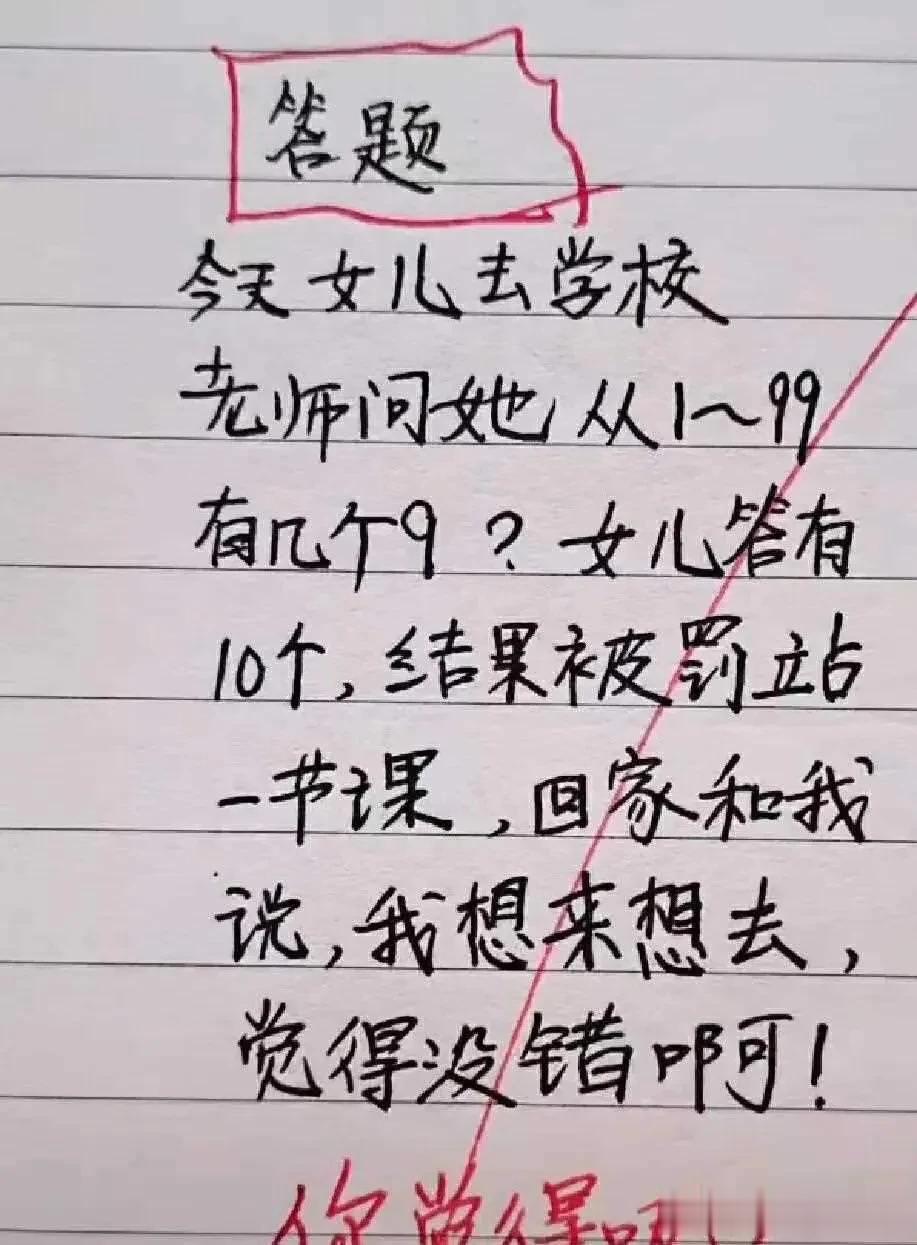 答题
今天女儿去学校
老师问她从1～99
有几个9？女儿答有
10个，结果被罚站
一节课，回家和我
说，我想来想去，
觉得没错啊！
你觉得